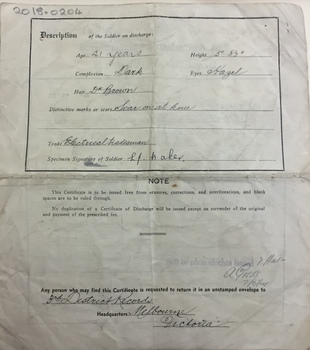 2018-0204
Description of the Soldier on discharge:
Age 21 years Height 5' 8½"
Complexion Dark Eyes Hazel
Hair Dk Brown
Distinctive marks or scars Scar on knee
Trade Electrical tradesman
Specimen Signature of Soldier Baker
NOTE
This Certificate is to be issued free from erasures, corrections, and interlineations, and blank
spaces are to be ruled through.
No duplication of a Certificate of Discharge will be issued except on surrender of the original
and payment of the prescribed fee.
Any person who may find this Certificate is requested to return it in an unstamped envelope to
3rd District Records
Headquarters: Melbourne
Victoria